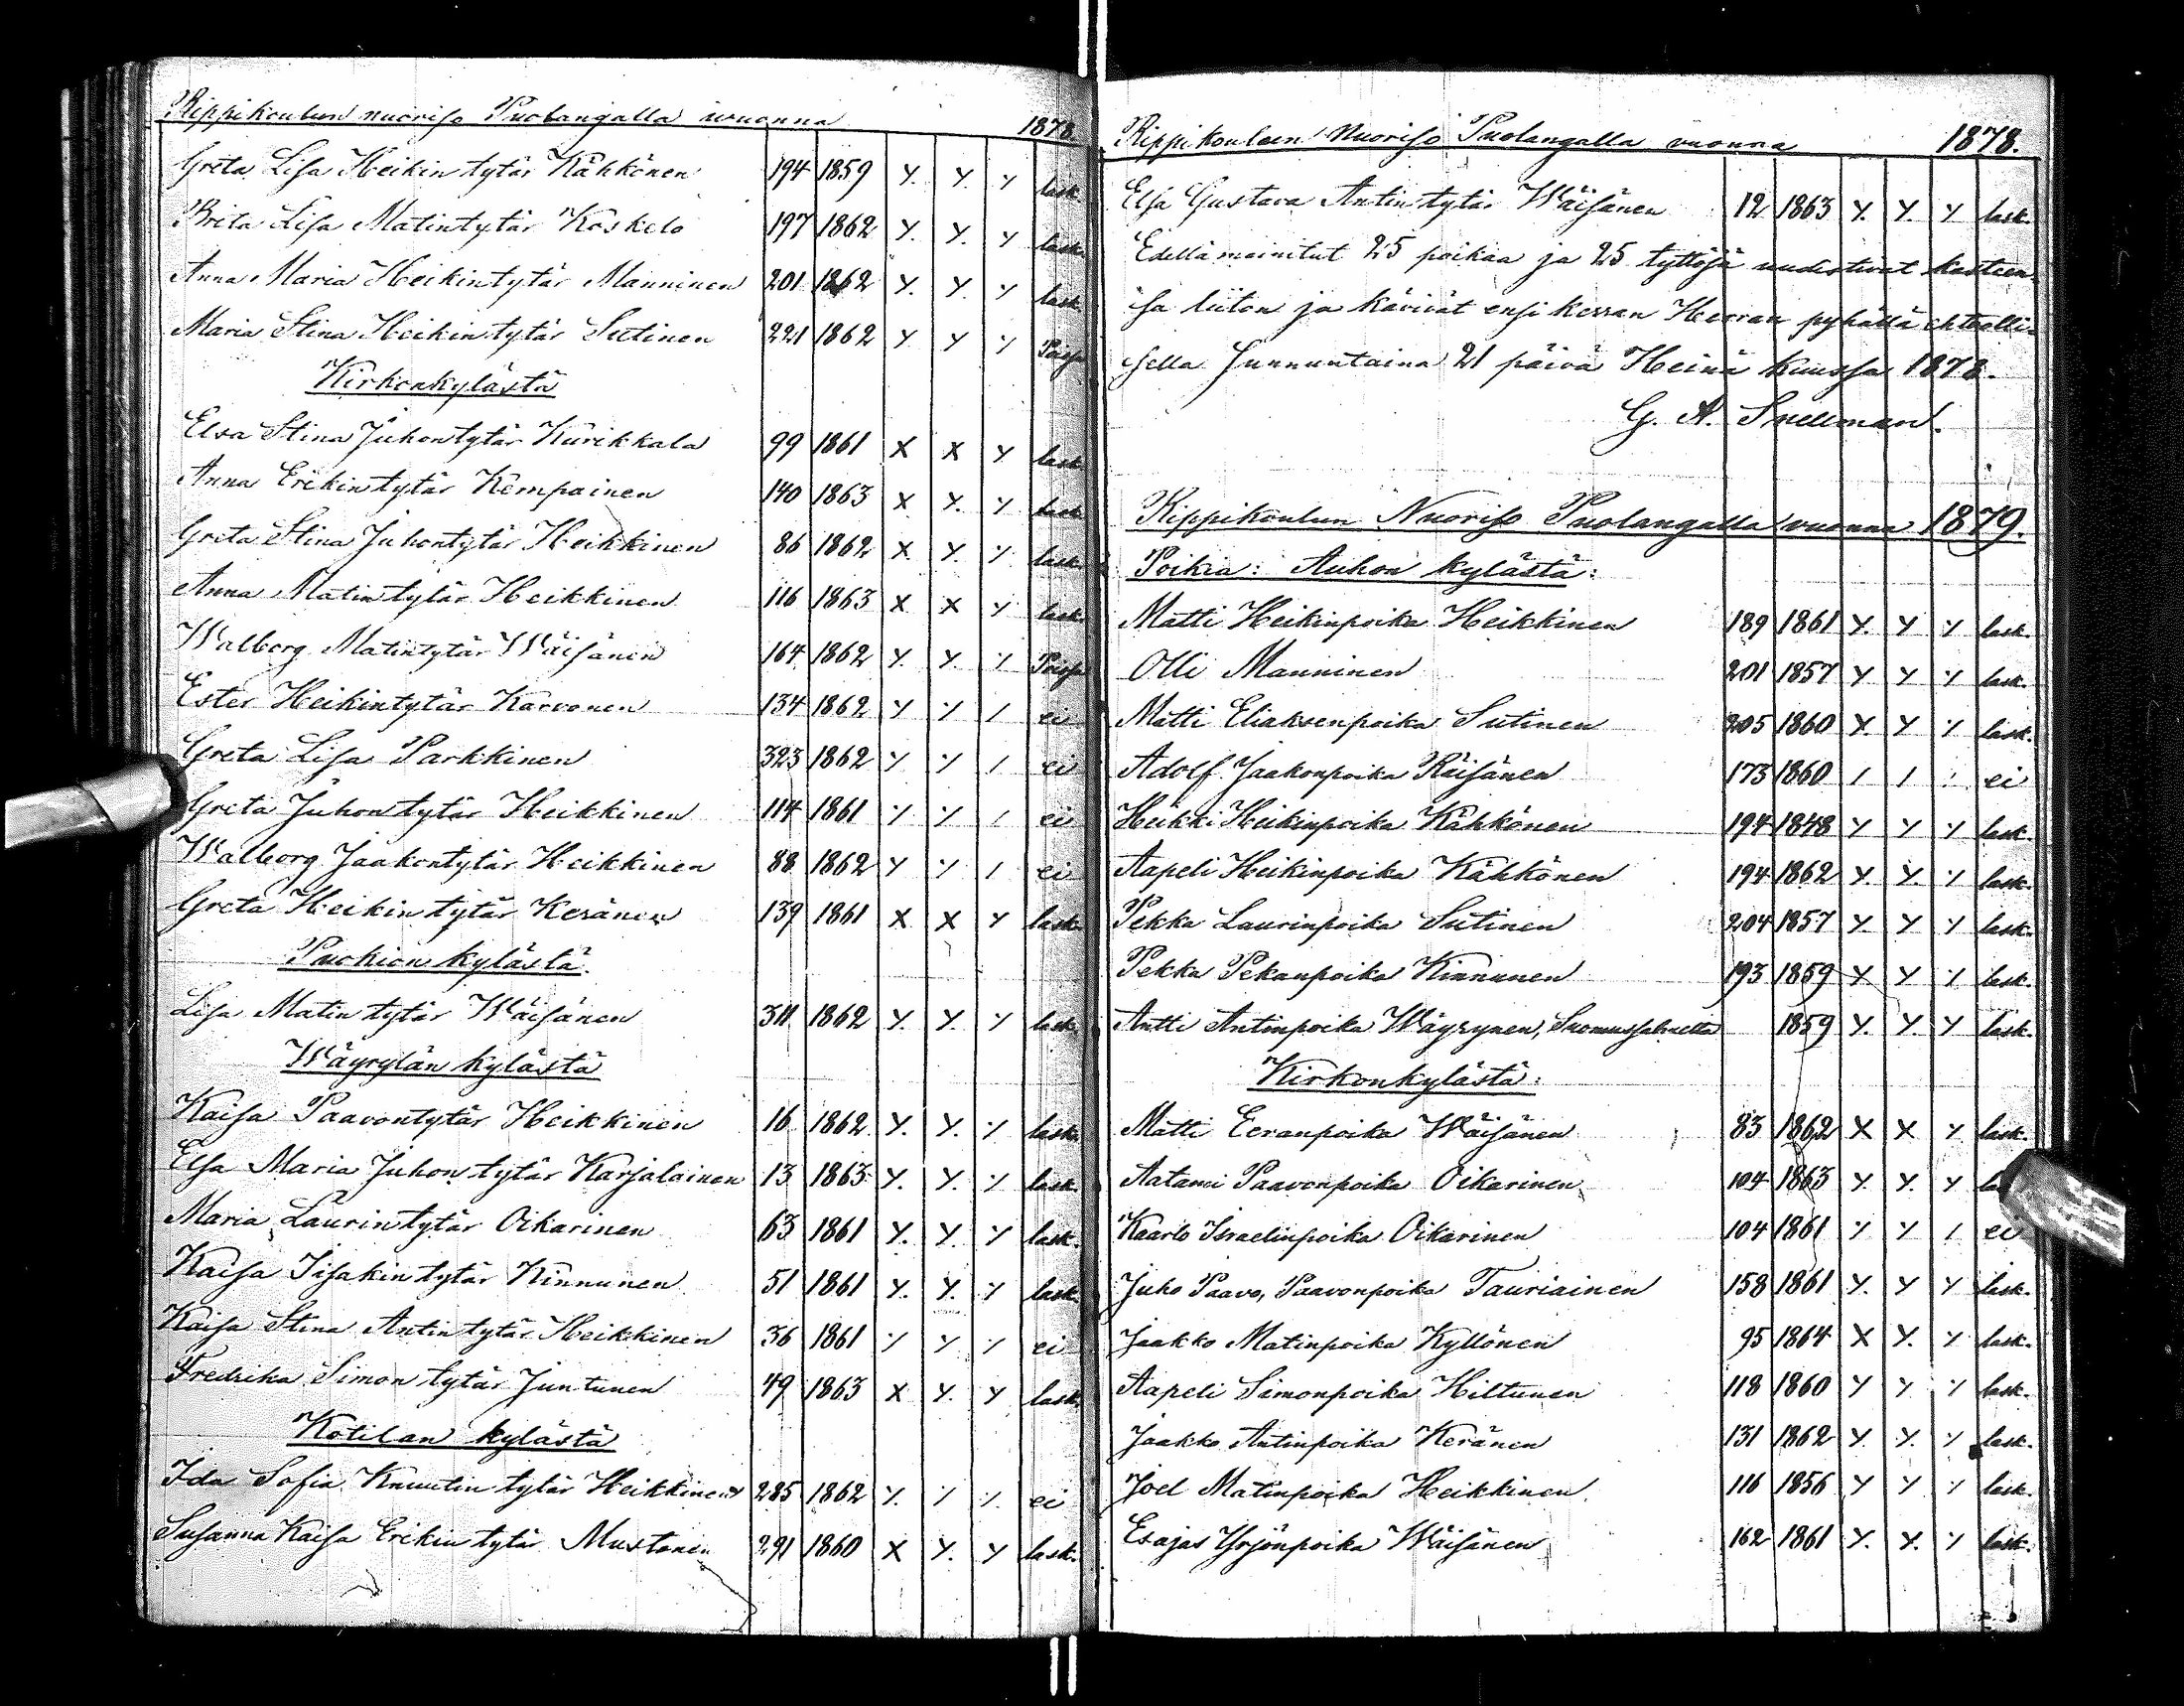 Rippikoulun nuoriso Puolangalla wuonna 1878
Greta Lisa Heikin tytär Kähkönen 194 1859 Y. Y. Y lask.
Brita Lisa Matintytär Koskelo 197 1862 Y. Y. Y lask.
Anna Maria Heikintytär Manninen 201 1862 Y. Y. Y lask.
Maria Stina Heikin tytär Sutinen 221 1862 Y Y Y Poisja
Kirkonkylästä
Elsa Stina Juhontytär Kurikkala 99 1861 X X Y lask.
Anna Erikin tytär Kempainen 140 1863 X Y. Y lask.
Greta Stina Juhontytär Heikkinen 86 1862 X Y. Y lask.
Anna Matin tytär Heikkinen 116 1863 X X Y lask.
Walborg Matintytär Wäisänen 164 1862 Y. Y. Y Poisja
Ester Heikintytär Karvonen 134 1862 Y Y / ei
Greta Lisa Parkkinen 323 1862 Y Y / ei
Greta Juhon tytär Heikkinen 114 1861 Y Y / ei
Walborg Jaakontytär Heikkinen 88 1862 Y Y / ei
Greta Heikin tytär Keränen 139 1861 X X Y lask.
Puokion kylästä.
Lisa Matin tytär Wäisänen 311 1862 Y. Y. Y lask.
Wäyrylän kylästä
Kaisa Paavontytär Heikkinen 16 1862 Y. Y. Y lask.
Elsa Maria Juhon tytär Karjalainen 13 1863 Y. Y. Y lask.
Maria Laurintytär Oikarinen 63 1861 Y. Y. Y lask.
Kaisa Iisakin tytär Kinnunen 51 1861 Y. Y. Y lask.
Kaisa Stina Antin tytär Heikkinen 36 1861 Y Y Y ei
Fredrika Simon tytär Juntunen 49 1863 X Y. Y lask.
Kotilan kylästä
Ida Sofia Knuutin tytär Heikkinen 285 1862 Y. Y Y. ei
Susanna Kaisa Erikin tytär Mustonen 291 1860 X Y. Y lask.
Rippikoulun Nuoriso Puolangalla vuonna 1878.
Elsa Gustava Antin tytär Wäisänen 12 1863 Y. Y. Y lask.
Edellä mainitut 25 poikaa ja 25 tyttöjä uudistivat kasteen-
sa liiton ja kävivät ensi kerran Herran pyhällä ehtoolli-
sella Sunnuntaina 21 päivä Heinä kuussa 1878.
G. A. Snellman.
Rippikoulun Nuoriso Puolangalla vuonna 1879.
Poikia: Auhon kylästä:
Matti Heikinpoika Heikkinen 189 1861 Y. Y Y lask.
Olli Manninen 201 1857 Y Y Y lask.
Matti Eliaksenpoika Sutinen 205 1860 Y. Y Y lask.
Adolf Jaakonpoika Räisänen 173 1860 / / / ei
Heikki Heikinpoika Kähkönen 194 1848 Y Y Y lask.
Aapeli Heikinpoika Kähkönen 194 1862 Y. Y. Y lask.
Pekka Laurinpoika Sutinen 204 1857 Y. Y Y lask.
Pekka Pekanpoika Kinnunen 193 1859 Y Y Y lask.
Antti Antinpoika Wäyrynen, Suomussalmelta 1859 Y. Y. Y lask.
Kirkonkylästä:
Matti Eeranpoika Wäisänen 83 1862 X X Y lask.
Aatami Paavonpoika Oikarinen 104 1863 Y. Y. Y la
Kaarlo Israelinpoika Oikarinen 104 1861 Y Y / ei
Juho Paavo, Paavonpoika Tauriainen 158 1861 Y. Y Y lask.
Jaakko Matinpoika Kyllönen 95 1864 X Y. Y lask.
Aapeli Simonpoika Hiltunen 118 1860 Y Y Y lask.
Jaakko Antinpoika Keränen 131 1862 Y. Y. Y lask.
Joel Matinpoika Heikkinen 116 1856 Y Y Y lask.
Esajas Yrjönpoika Wäisänen 162 1861 Y. Y. Y lask.